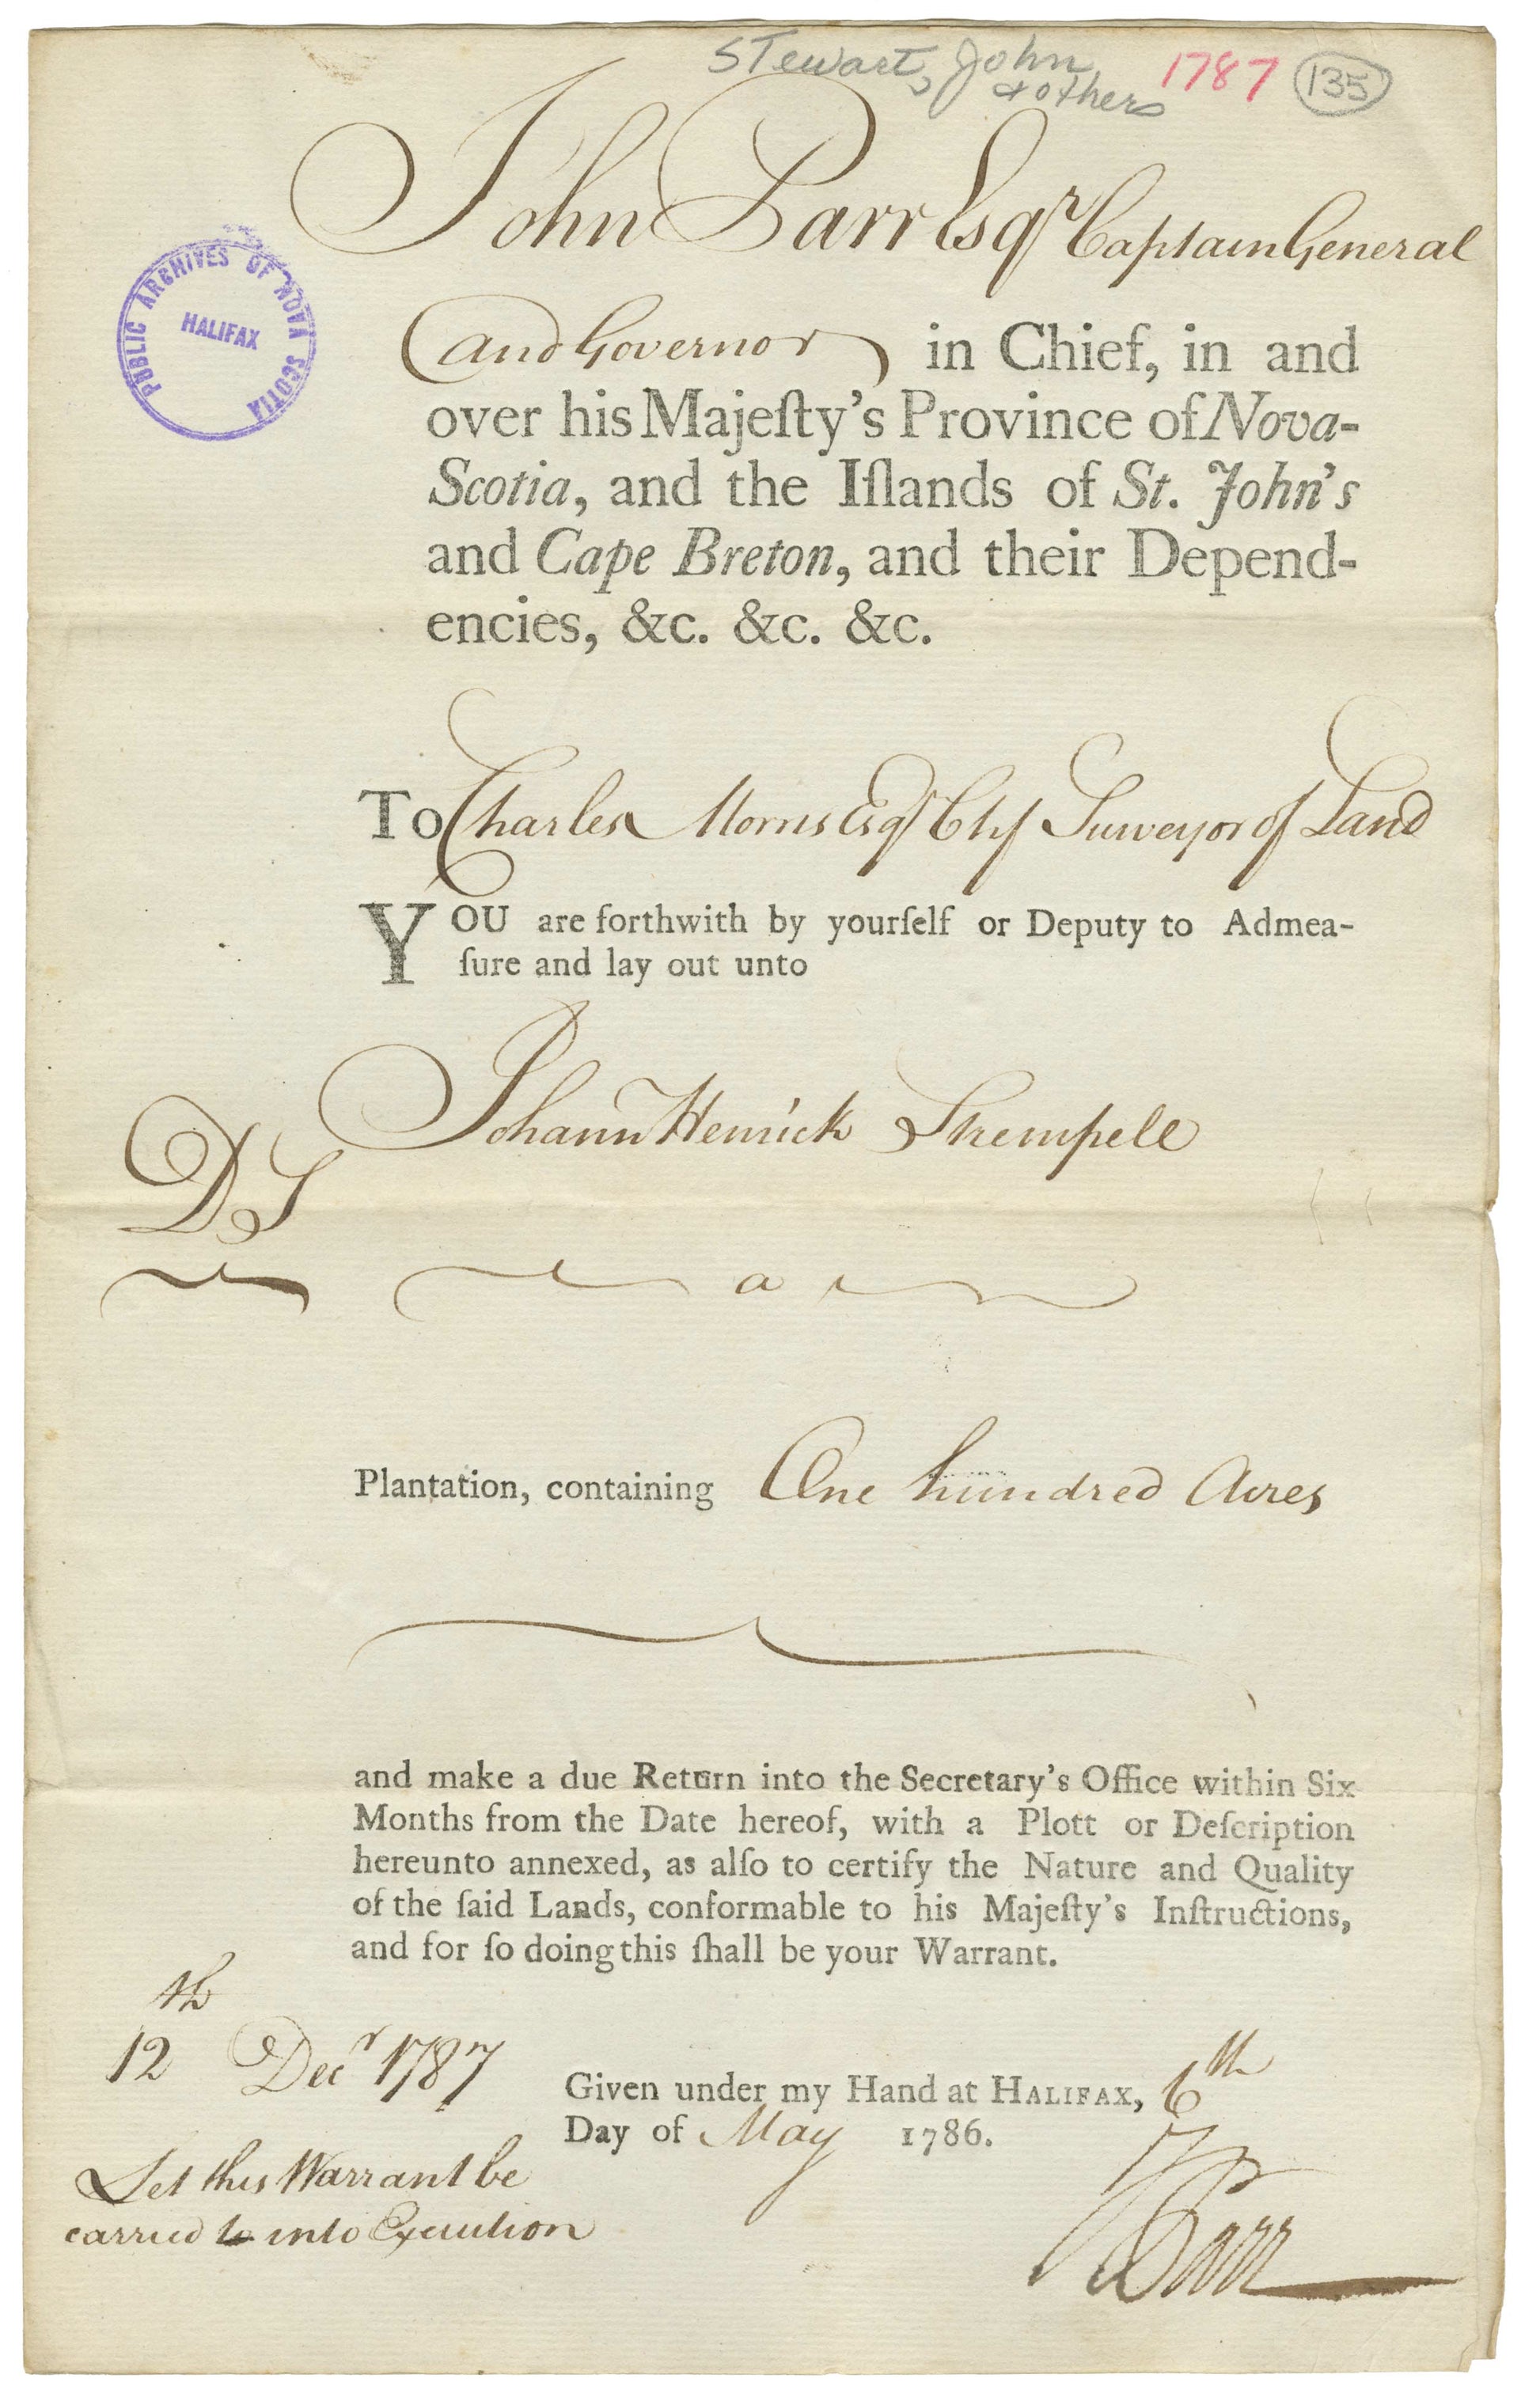 Stewart, John 1787 135
& others
John Parr Esqr Captain General
PUBLIC ARCHIVES OF NOVA SCOTIA
HALIFAX
and Governor in Chief, in and
over his Majeſty's Province of Nova-
Scotia, and the Iſlands of St. John's
and Cape Breton, and their Depend-
encies, &c. &c. &c.
To Charles Morris Esqr Chf Surveyor of Land
YOU are forthwith by yourſelf or Deputy to Admea-
ſure and lay out unto
Johann Henrick Strempell
DS
a
Plantation, containing One hundred Acres
and make a due Return into the Secretary's Office within Six
Months from the Date hereof, with a Plott or Deſcription
hereunto annexed, as alſo to certify the Nature and Quality
of the ſaid Lands, conformable to his Majeſty's Inſtructions,
and for ſo doing this ſhall be your Warrant.
12th Decr 1787
Given under my Hand at HALIFAX, 6th
Day of May 1786.
Let this Warrant be
carried to into Execution
J Parr